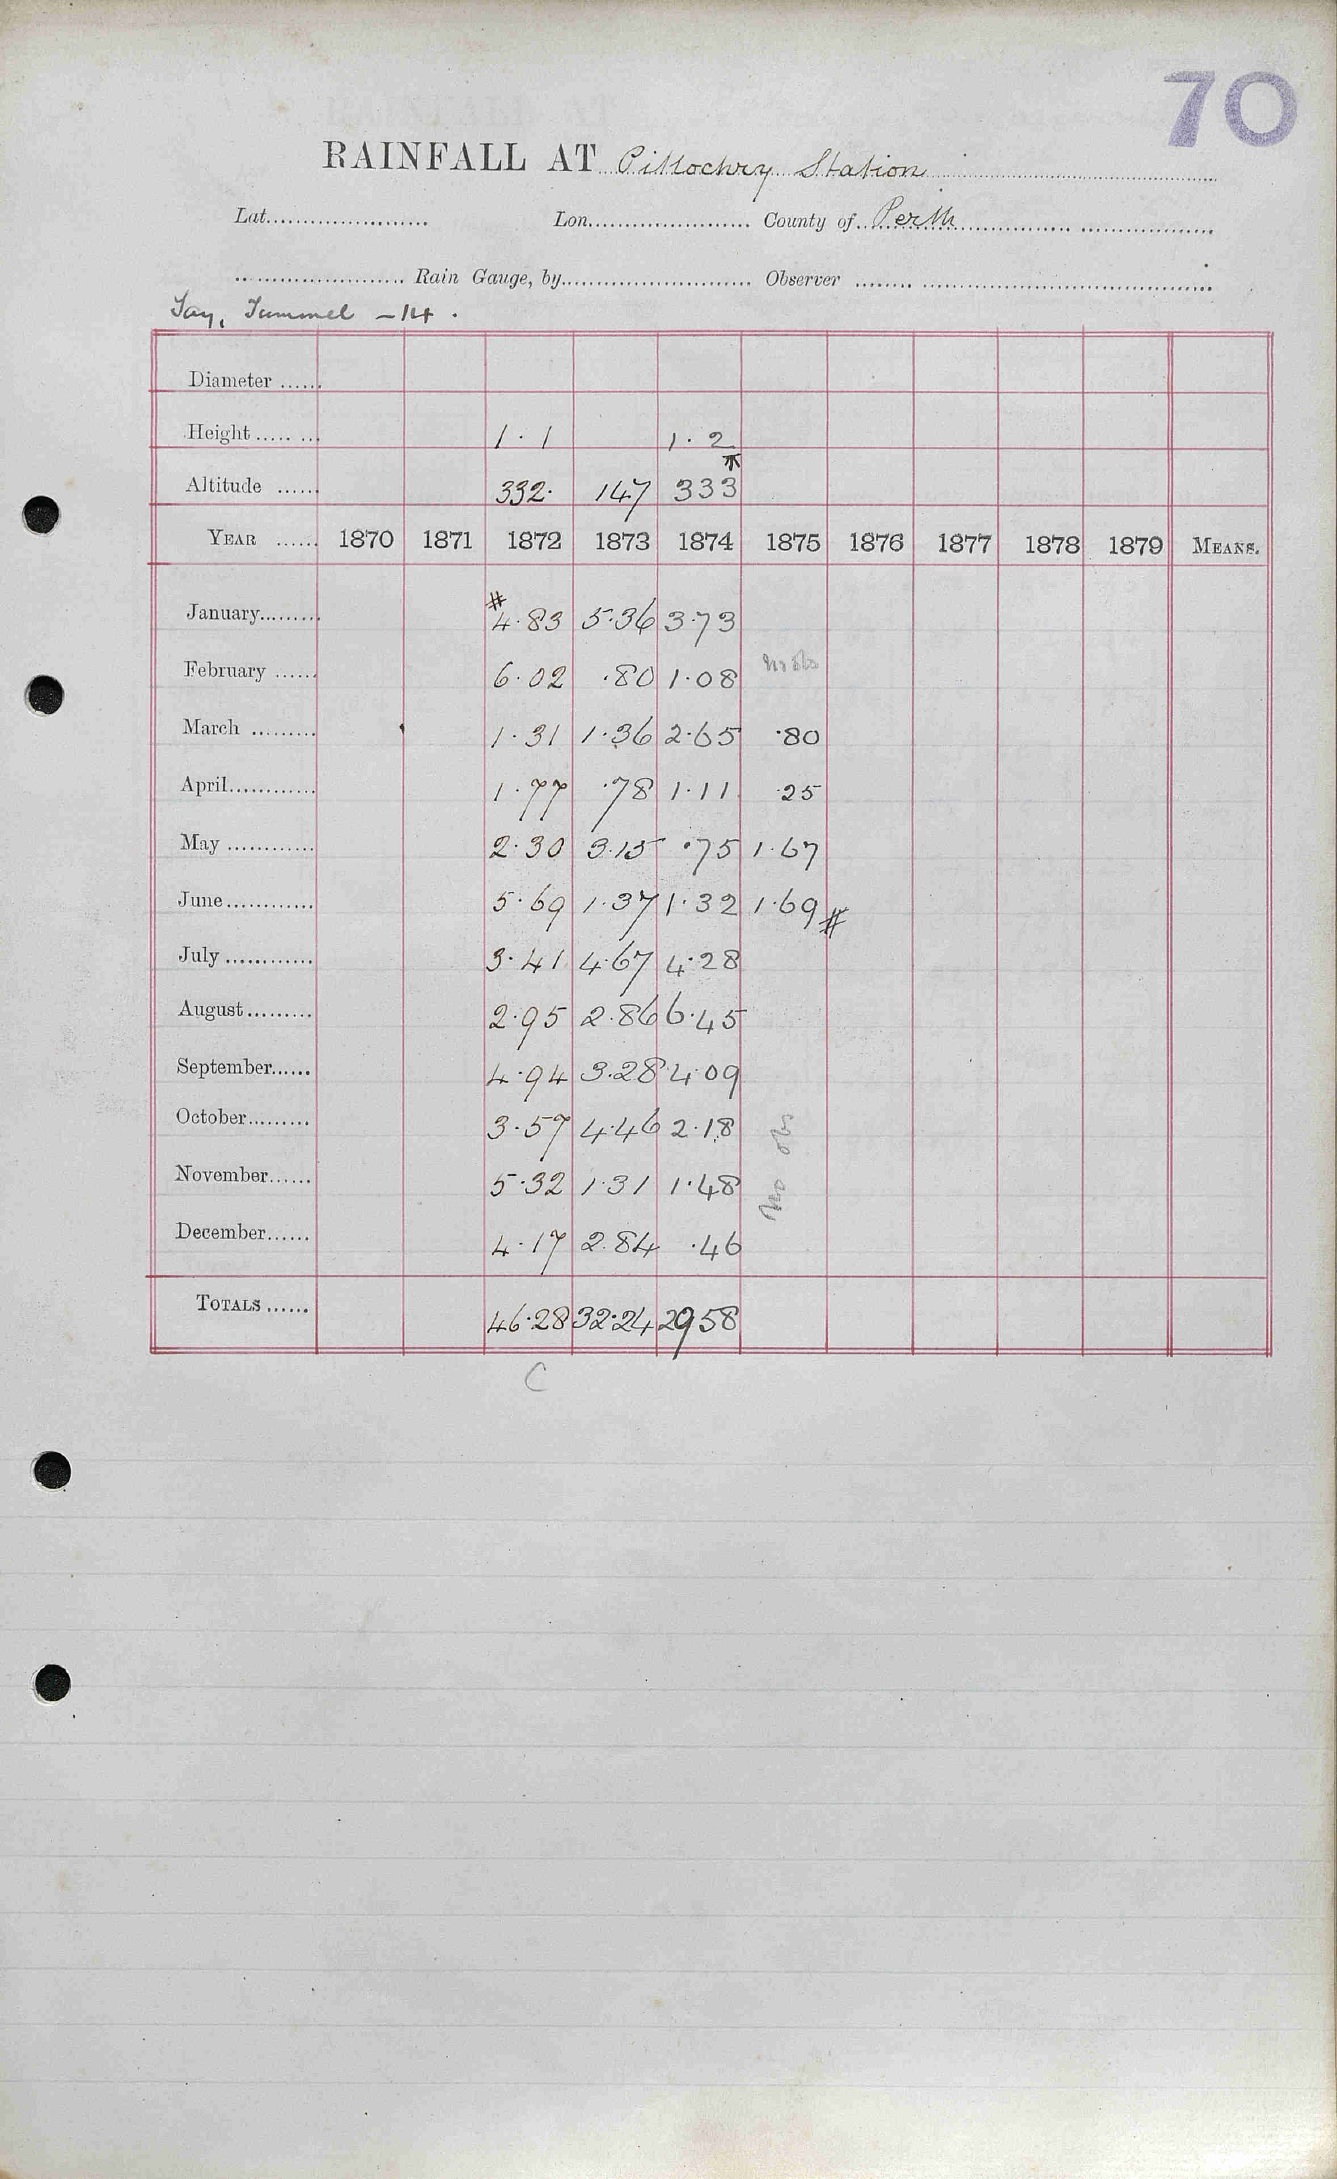 70
RAINFALL AT Pitlochry Station
Lat. Lon. County of Perth
Rain Gauge, by Observer
Tay, Tummel - 14.
Diameter
Height 1.1 1.2
Altitude 332. 147 333
YEAR 1870 1871 1872 1873 1874 1875 1876 1877 1878 1879 MEANS.
January # 4.83 5.36 3.73
February 6.02 .80 1.08 no obs
March 1.31 1.36 2.65 .80
April 1.77 .78 1.11 .25
May 2.30 3.15 .75 1.67
June 5.69 1.37 1.32 1.69 #
July 3.41 4.67 4.28
August 2.95 2.86 6.45
September 4.94 3.28 4.09
October 3.57 4.46 2.18
November 5.32 1.31 1.48 no obs
December 4.17 2.84 .46
TOTALS 46.28 32.24 29 58
C